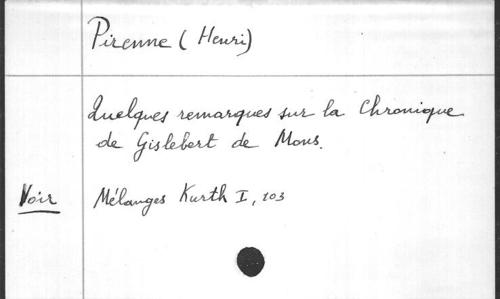 Pirenne (Henri)
Quelques remarques sur la Chronique
de Gislebert de Mons.
Voir Mélanges Kurth I, 103